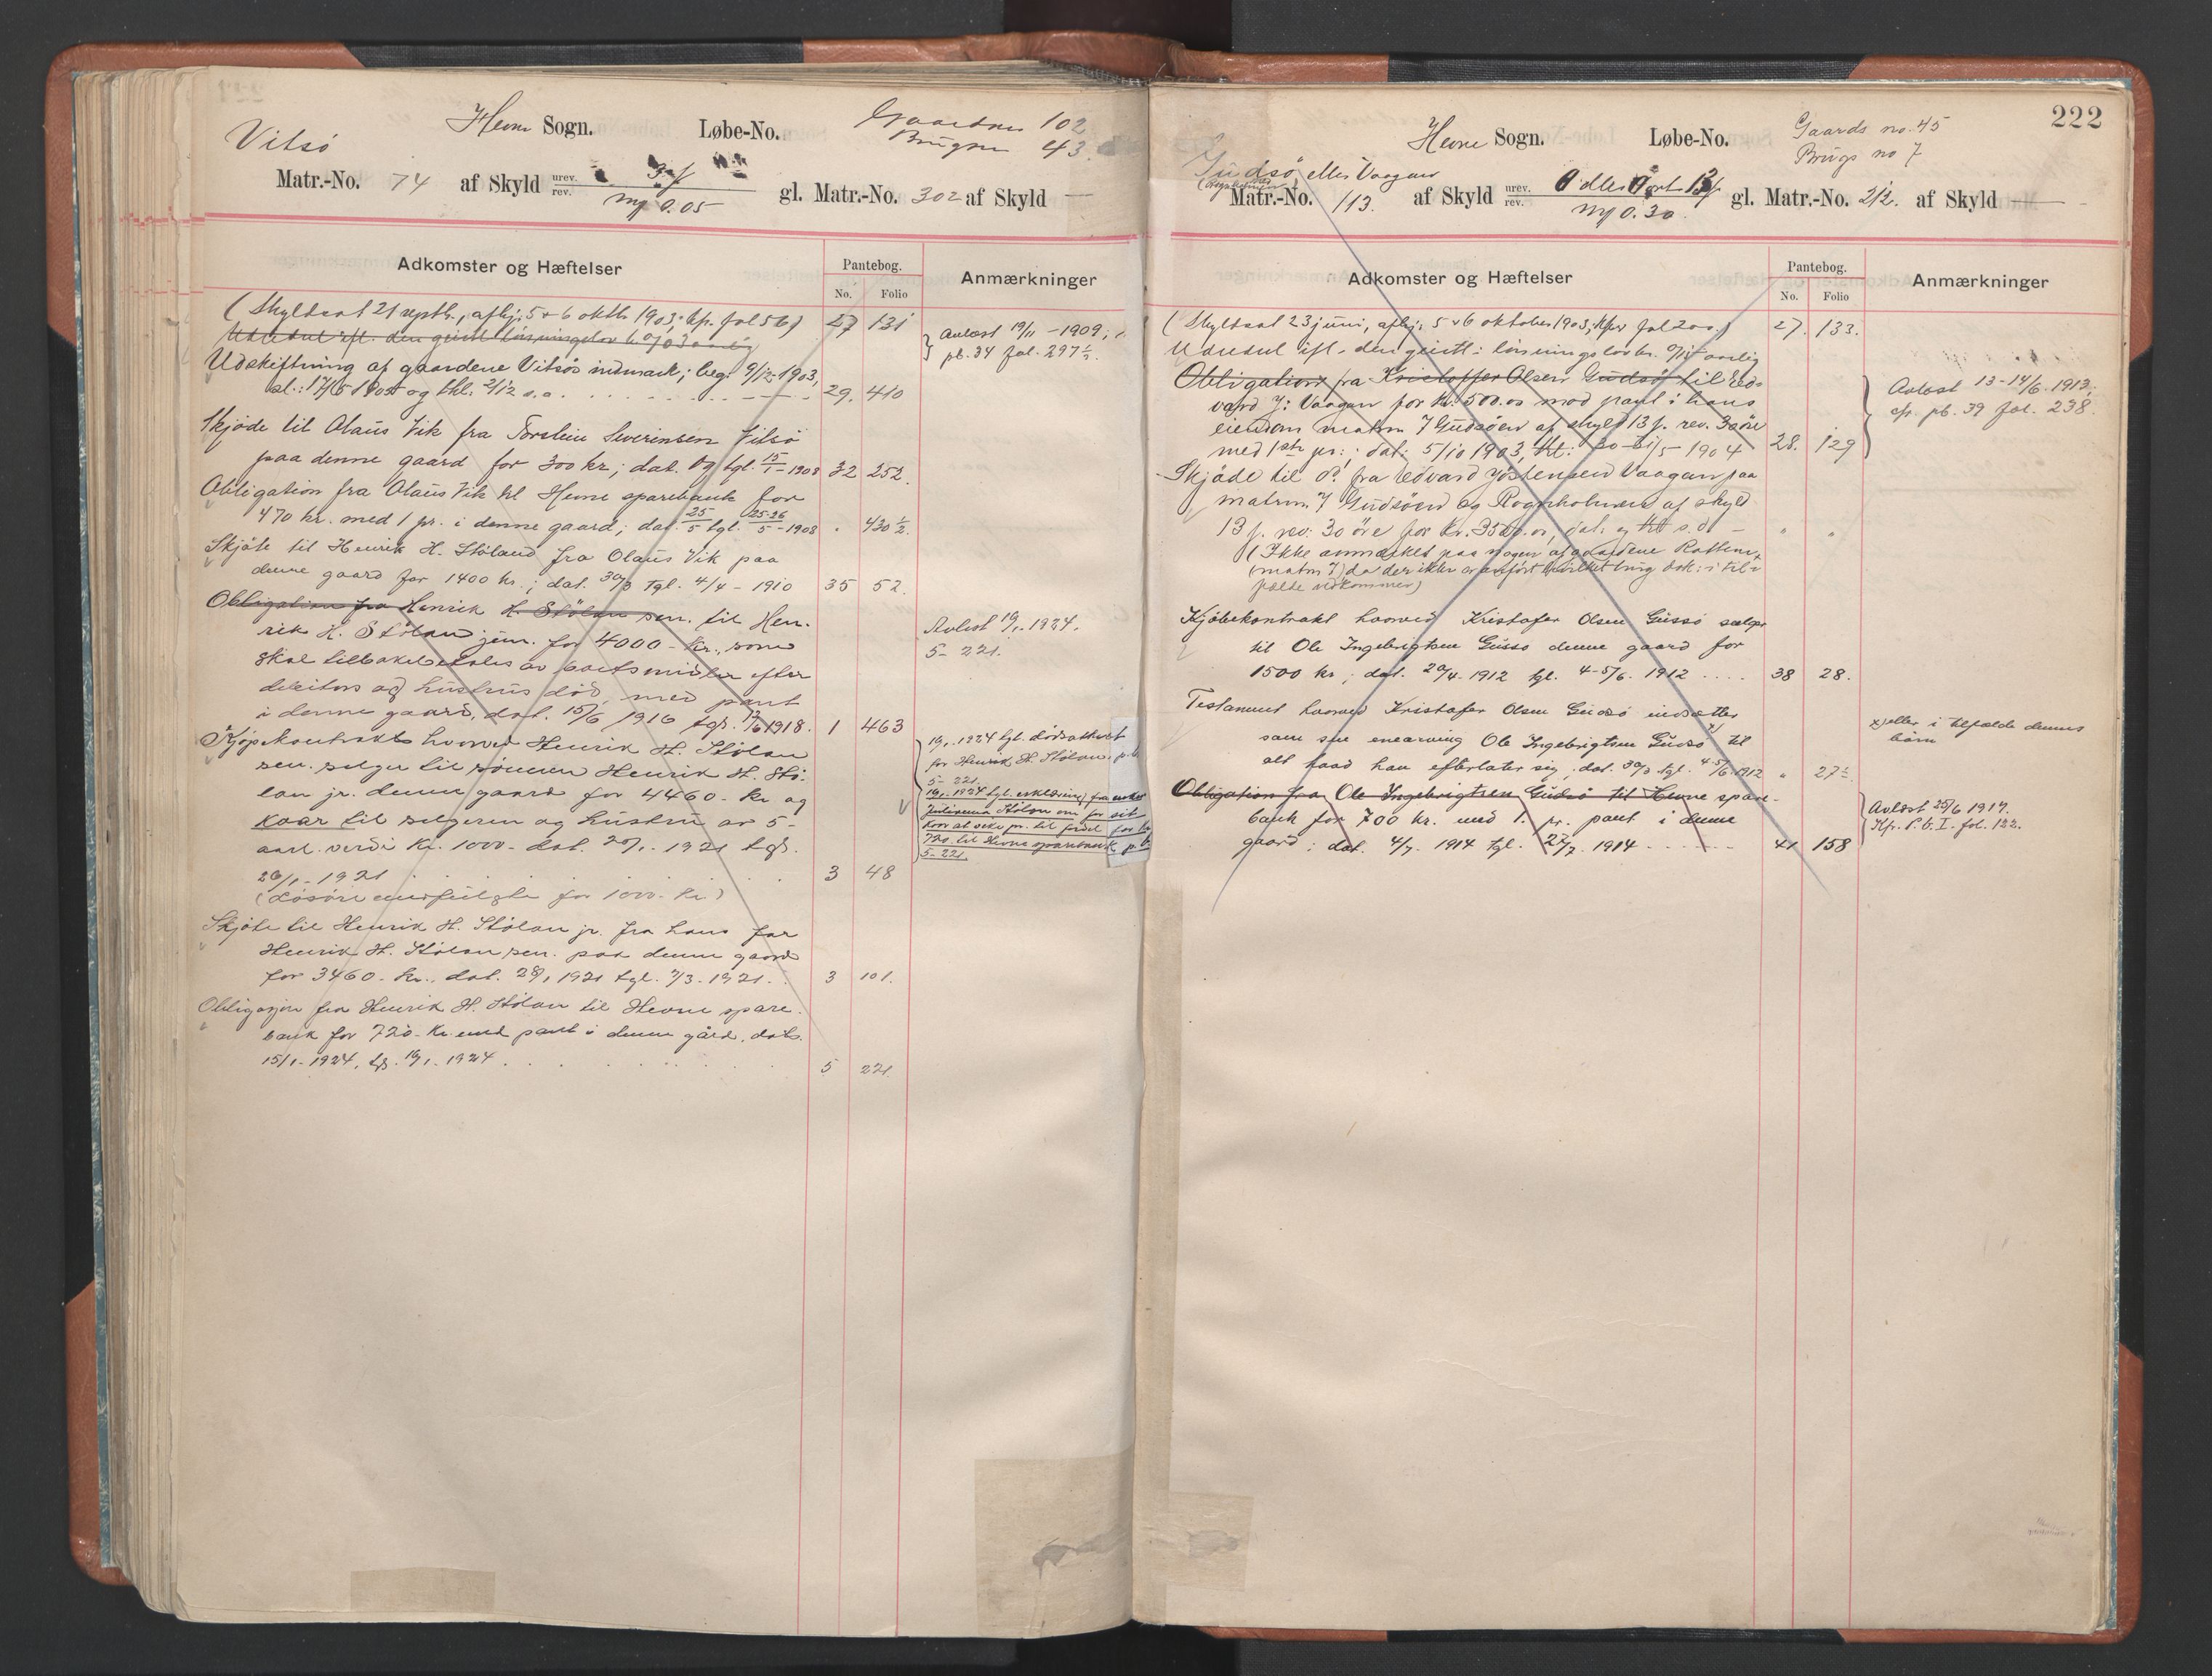 Vitsö
Hevne Sogn.
Løbe-No.
Gaardsno 102
Brugsno 43
Matr.-No. 74 af Skyld urev. rev. 3 f
my 0.05
gl. Matr.-No. 302 af Skyld —
Adkomster og Hæftelser
Pantebog.
No. Folio
Anmærkninger
(Skyldsat 21 septb., afhj. 5 & 6 oktb. 1903; kfr. fol 56) 27 131
Udredsel ifl. den geistl. løsningslov
Udskiftning af gaardene Vitsös indmark; beg. 9/12 1903,
sl.: 17/5 1905 og thl. 2/12 s.a. 29. 410
Skjøde til Olaus Vik fra Torstein Severinsen Vitsö
paa denne gaard for 300 kr.; dat. og tgl. 15/1-1908 32 252.
Obligation fra Olaus Vik til Hevne sparebank for
470 kr. med 1 pr. i denne gaard; dat. 25/5 tgl. 25-26/5-1908 " 430 1/2.
Avlæst 19/11-1909;
pb. 34 fol. 297 1/2.
Skjøte til Henrik H. Stöland fra Olaus Vik paa
denne gaard for 1400 kr.; dat. 30/3 tgl. 4/4-1910 35 52.
Obligation fra Henrik H. Stölan sen. til Hen-
rik H. Stölan jun. for 4000 - kr., som
skal tilbakebetales av boets midler efter
debitors og hustrus död, med pant
i denne gaard, dat. 15/6 1916 tgl. 1918. 1 463
Avlest 16/1. 1924.
5- 221.
Kjøpekontrakt hvorved Henrik H. Stölan
sen. selger til sönnen Henrik H. Stö-
lan jr. denne gaard for 4460 - kr og
kaar til selgeren og hustru av 5-
aarl. verdi kr. 1000- dat. 20/1. 1921 tgl.
26/1 - 1921 3 48
(Løsøre medfulgte for 1000. kr.)
16/1. 1924 tgl. dödsattest
for Henrik H. Stölan. p.b.
5- 221.
16/1. 1924 tgl. erklæring fra enken
Stölan om for sit
kor at vike pr. til fordel for
720 til Hevne sparebank p.b.
5- 221.
Skjøte til Henrik H. Stölan jr. fra hans far
Henrik H. Stölan sen. paa denne gaard
for 3460 - kr., dat. 28/1 1921 tgl. 7/3. 1921. 3 101.
Obligasjon fra Henrik H. Stölan til Hevne spare-
bank for 720 - kr. med pant i denne gård, dat.
15/1. 1924, tgl. 16/1. 1924 5 221.
222
Hevne Sogn.
Løbe-No.
Gaards no. 45
Brugs no 7
Gudsö eller Vaagan
Matr.-No. 113. af Skyld urev. rev.
my 0.30
gl. Matr.-No. 212. af Skyld —
Adkomster og Hæftelser
Pantebog.
No. Folio
Anmærkninger
(Skyldsat 23 juni, afhj. 5 & 6 oktober 1903; kfr. fol 200.) 27. 133.
Udredsel ifl. den geistl. løsningslov kr. aarlig
Obligation fra Kristoffer Olsen Gudsø til Ed-
vard J. Vaagan for kr. 500.00 mod pant i hans
eiendom matrn 7 Gudsöen af skyld 13 f. rev. 30 öre
med 1ste pr.; dat. 5/10 1903, tht. 30-31/5 1904 28. 129
Avlæst 13-14/6. 1913;
cfr. pb. 39 fol. 238.
Skjøde til do. fra Edvard Jostensen Vaagan paa
matrn 7 Gudsöen og Rognholmen af skyld
13 f. rev. 30 öre for kr. 3500.00, dat. og tht s.d. " "
(Ikke anmærket paa nogen af gaardene Rotten,
(matrn 7) da der ikke er anført hvilket brug dok: i til-
fælde vedkommer)
Kjøbekontrakt hvorved Kristofer Olsen Gudsö sælger
til Ole Ingebrigtsen Gudsö denne gaard for
1500 kr; dat. 20/4 1912 tgl. 4-5/6. 1912 38 28.
Testament hvorved Kristofer Olsen Gudsö indsætter
som sin enearving Ole Ingebrigtsen Gudsö x) til
alt hvad han efterlater sig; dat. 30/3 tgl. 4-5/6 1912 " 27 1/2.
x) eller i tilfælde dennes
börn
Obligation fra Ole Ingebrigtsen Gudsö til Hevne spare-
bank for 700 kr. med 1. pr. pant i denne
gaard; dat. 4/7. 1914 tgl. 27/7. 1914 41 158
Avlæst 25/6 1917.
Kfr. P.b. I. fol. 122.